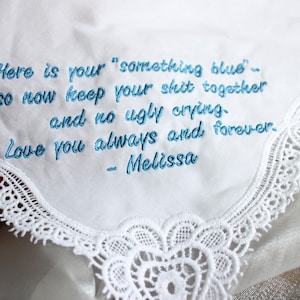 Here is your "something blue" ~
so now keep your shit together
and no ugly crying.
Love you always and forever.
~ Melissa